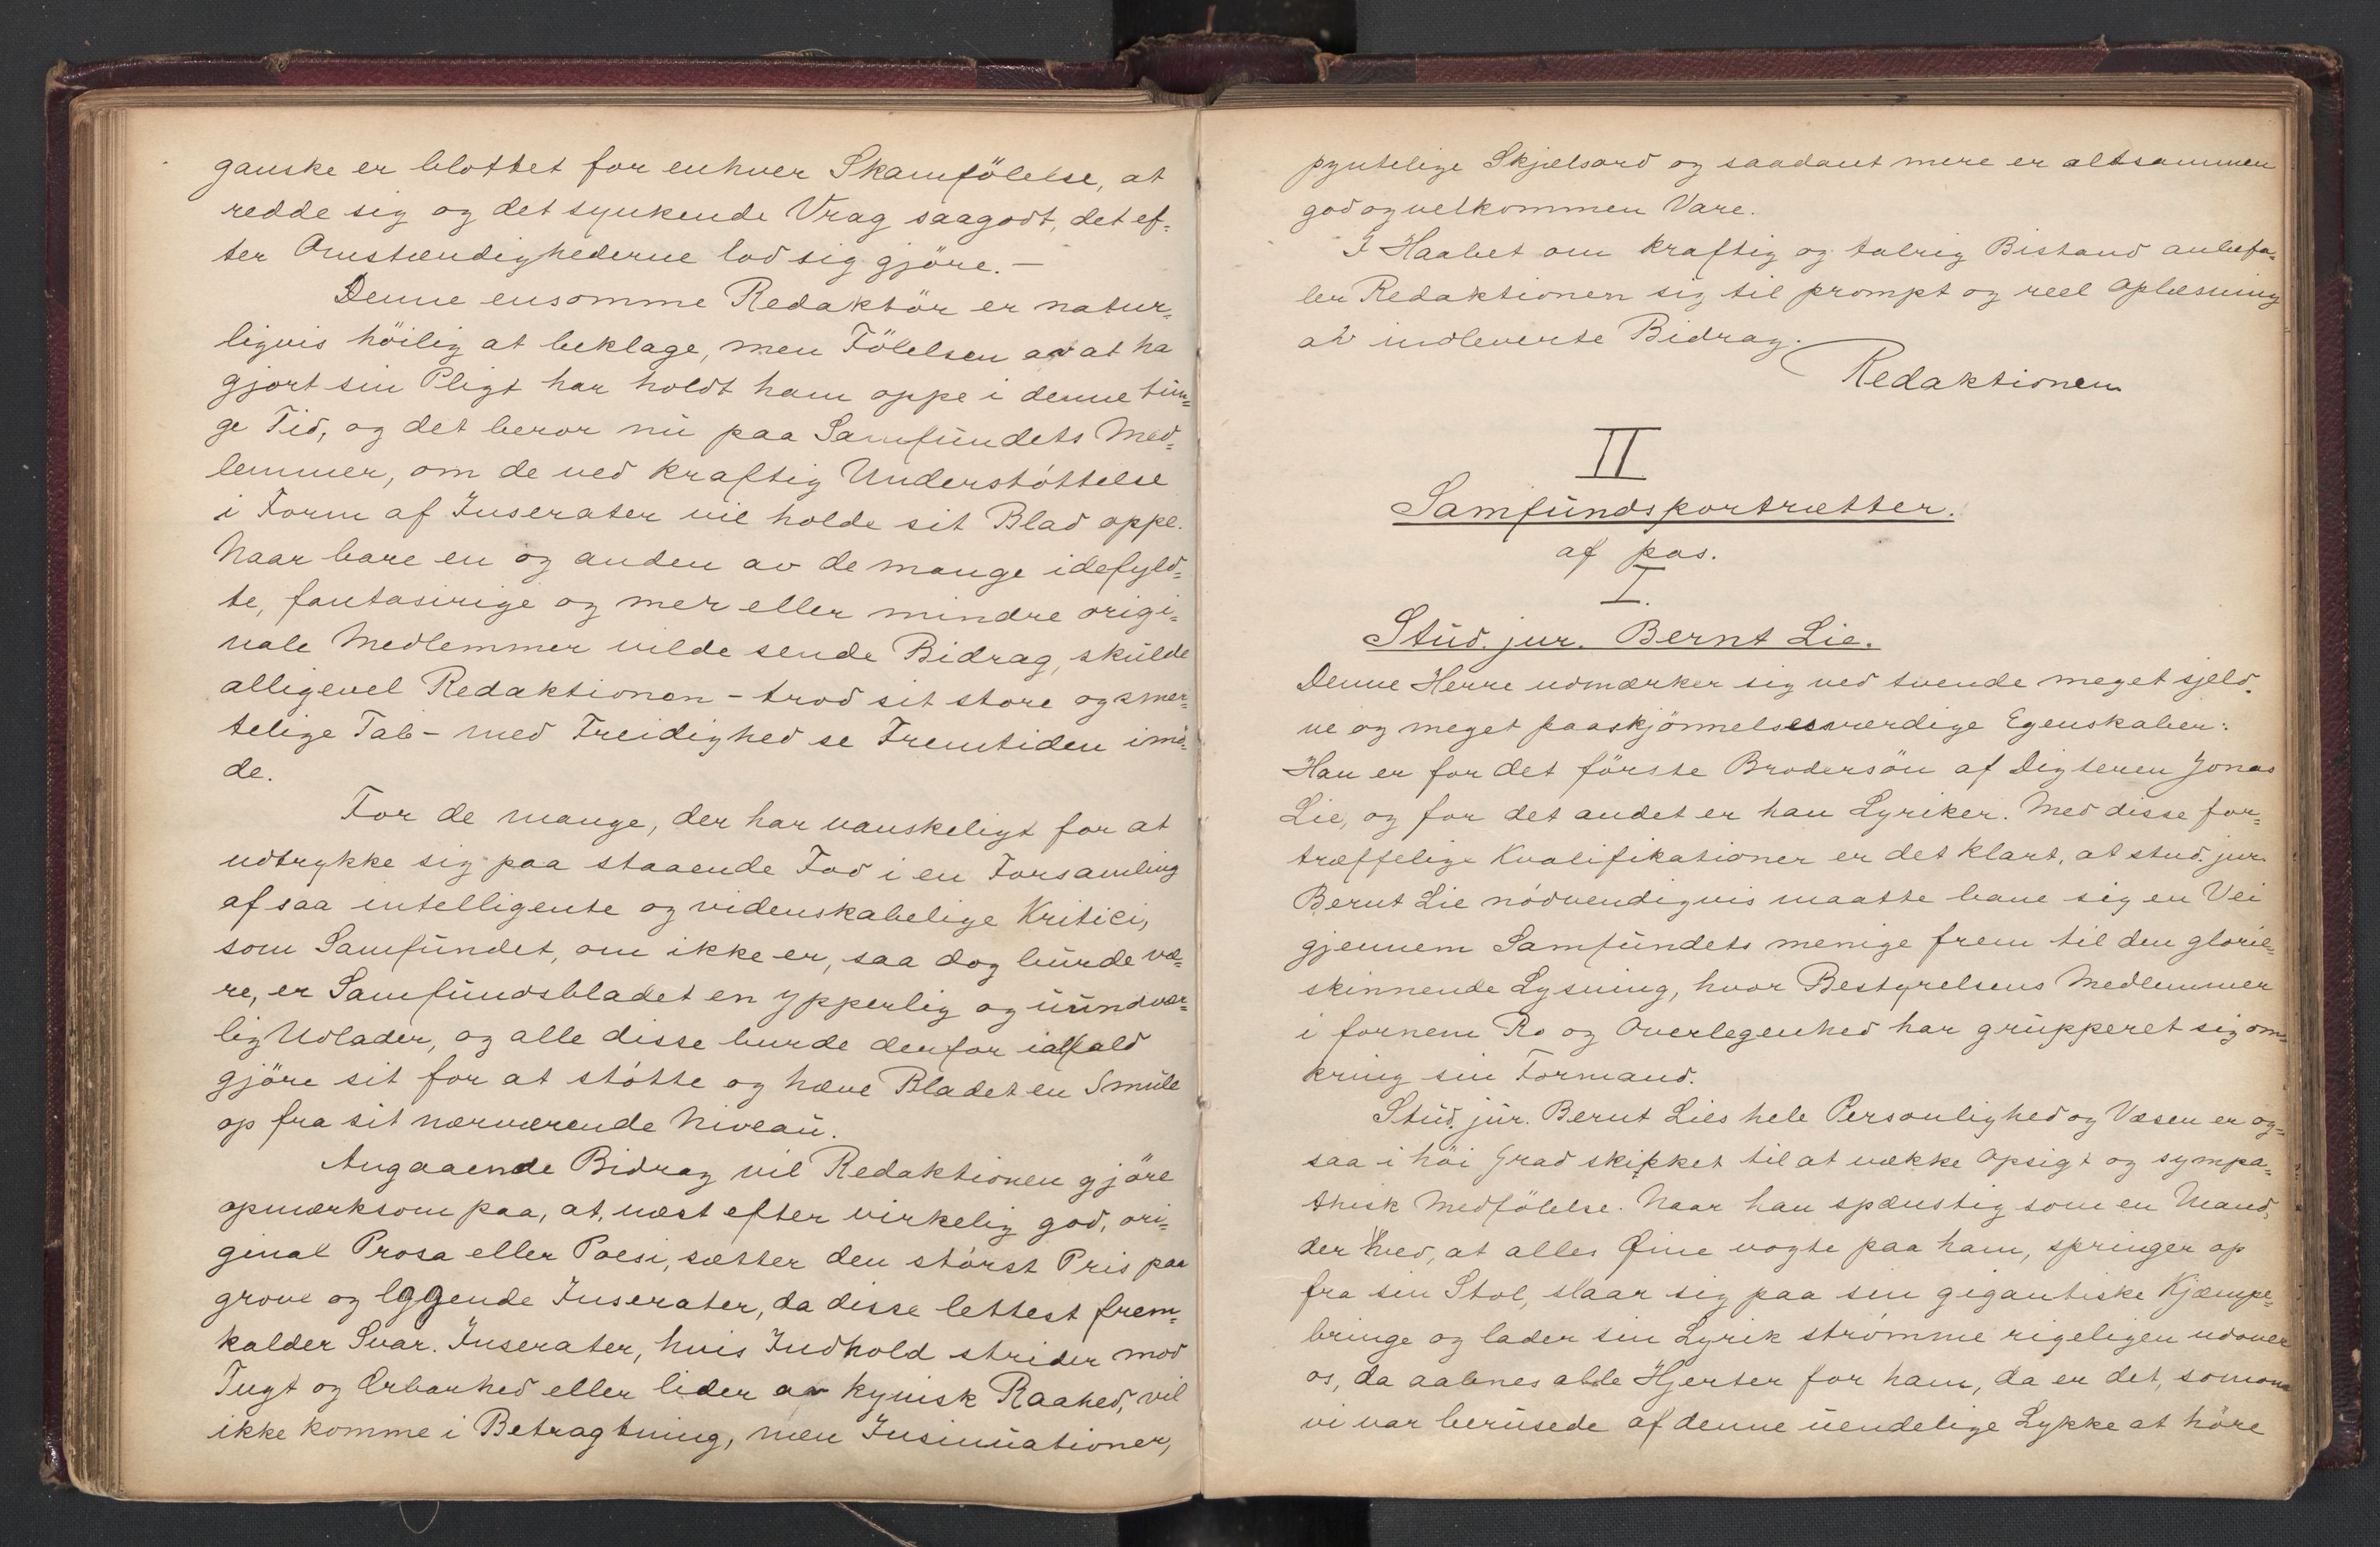 ganske er blottet for enhver Skamfölelse, at
redde sig og det synkende Vrag saagodt, det ef-
ter Omstændighederne lod sig gjöre. —
Denne ensomme Redaktör er natur-
ligvis höilig at beklage, men Fölelsen av at ha
gjort sin Pligt har holdt ham oppe i denne tun-
ge Tid, og det beror nu paa Samfundets Med-
lemmer, om de ved kraftig Understöttelse
i Form af Inserater vil holde sit Blad oppe.
Naar bare en og anden av de mange idefyld-
te, fantasirige og mer eller mindre origi-
nale Medlemmer vilde sende Bidrag, skulde
alligevel Redaktionen – trod sit store og smer-
telige Tab – med Freidighed se Fremtiden imö-
de.
For de mange, der har vanskeligt for at
udtrykke sig paa staaende Fod i en Forsamling
af saa intelligente og videnskabelige Kritici,
som Samfundet, om ikke er, saa dog burde væ-
re, er Samfundsbladet en ypperlig og uundvær-
lig Udlader, og alle disse burde derfor ialfald
gjöre sit for at stötte og hæve Bladet en Smule
op fra sit nærværende Niveau.
Angaaende Bidrag vil Redaktionen gjöre
opmærksom paa, at, næst efter virkelig god, ori-
ginal Prosa eller Poesi, sætter den störst Pris paa
grove og lggende Inserater, da disse lettest frem-
kalder Svar. Inserater, hvis Indhold strider mod
Tugt og Ærbarhed eller lider av kynisk Raahed, vil
ikke komme i Betragtning, men Insinuationer,
pyntelige Skjælsord og saadant mere er altsammen
god og velkommen Vare.
I Haabet om kraftig og talrig Bistand anbefa-
ler Redaktionen sig til prompt og reel Oplæsning
av indleverte Bidrag.
Redaktionen
II
Samfundsportrætter.
af pas.
I.
Stud. jur. Bernt Lie.
Denne Herre udmærker sig ved tvende meget sjeld-
ne og meget paaskjönnelsesværdige Egenskaber:
Han er for det förste Brodersön af Digteren Jonas
Lie, og for det andet er han Lyriker. Med disse for-
træffelige Kvalifikationer er det klart, at stud. jur.
Bernt Lie nödvendigvis maatte bane sig en Vei
gjennem Samfundets menige frem til den glorie-
skinnende Lysning, hvor Bestyrelsens Medlemmer
i fornem Ro og Overlegenhed har grupperet sig om-
kring sin Formand.
Stud. jur. Bernt Lies hele Personlighed og Væsen er og-
saa i höi Grad skikket til at vække Opsigt og sympa-
thisk Medfölelse. Naar han spænstig som en Mand,
der ved, at alles Øine vogte paa ham, springer op
fra sin Stol, slaar sig paa sin gigantiske Kjæmpe-
bringe og lader sin Lyrik strömme rigeligen udover
os, da aabnes alle Hjerter for ham, da er det, somom
vi var berusede af denne uendelige Lykke at höre